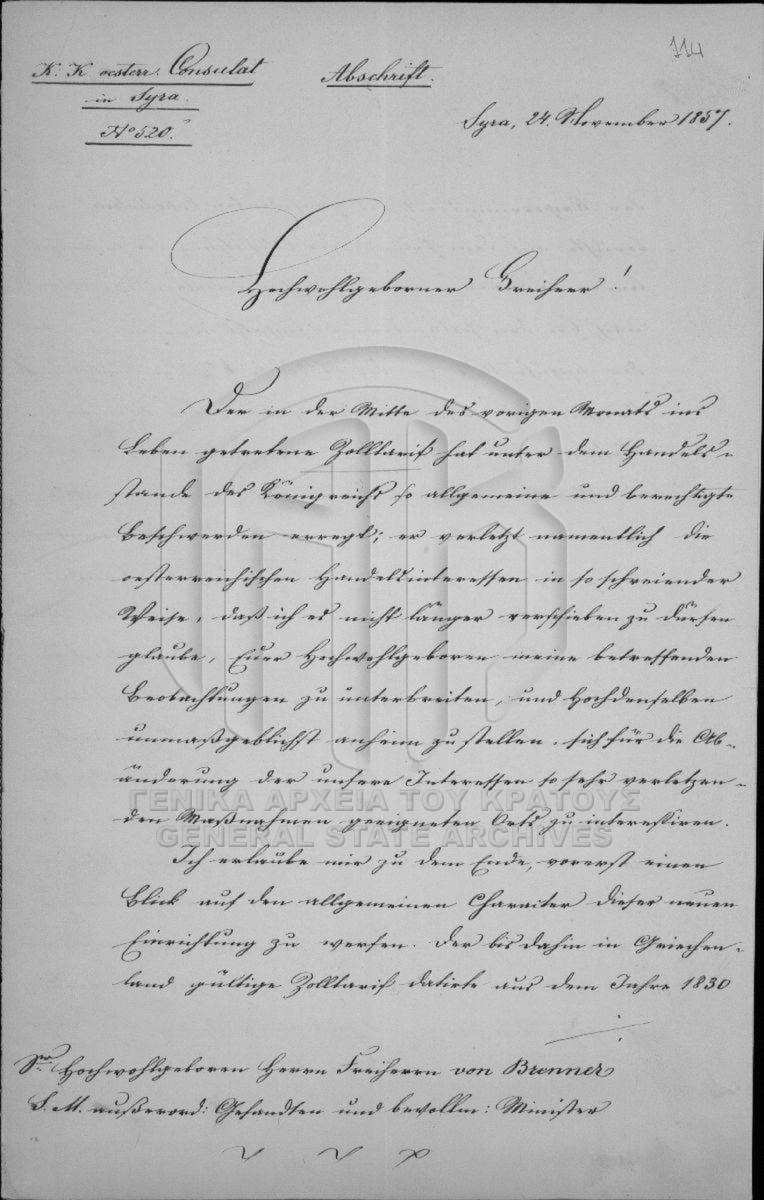 114
K: K. oesterr. Consulat
in Syra.
No 520.
Abschrift.
Syra, 24. November 1857.
Hochwohlgeborner Freiherr!
Der in der Mitte des vorigen Monats ins
Leben getretene Zolltarif hat unter dem Handels-
stande des Königreichs so allgemeine und berechtigte
Beschwerden erregt; er verletzt namentlich die
oesterreichischen Handelsinteressen in so schreiender
Weise, daß ich es nicht länger verschieben zu dürfen
glaube, Euer Hochwohlgeboren meine betreffenden
Beobachtungen zu unterbreiten, und Hochdenselben
unmaßgeblichst anheim zu stellen, sich für die Ab-
änderung der unsere Interessen so sehr verletzen-
den Maßnahmen geeigneten Orts zu interessiren.
Ich erlaube mir zu dem Ende, vorerst einen
Blick auf den allgemeinen Character dieser neuen
Einrichtung zu werfen. Der bis dahin in Griechen-
land gültige Zolltarif datirte aus dem Jahre 1830
Sr. Hochwohlgeboren Herrn Freiherrn von Brenner
S. M. außerord: Gesandten und bevollm: Minister
ΓΕΝΙΚΑ ΑΡΧΕΙΑ ΤΟΥ ΚΡΑΤΟΥΣ
GENERAL STATE ARCHIVES